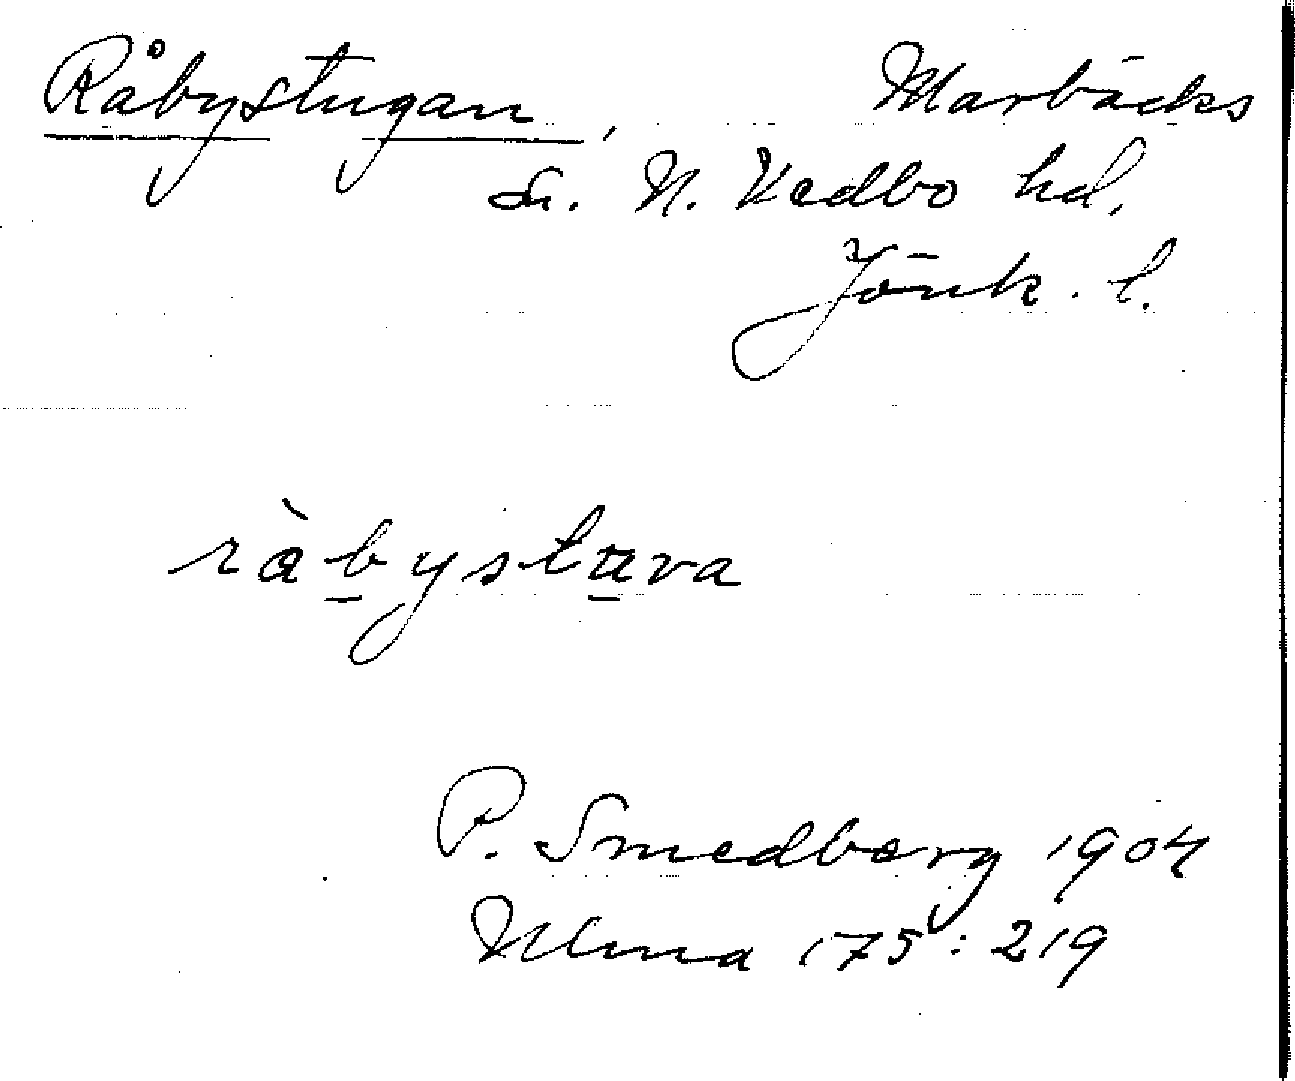 Råbystugan, Marbäcks
sn. N. Vedbo hd,
Jönk. l.
ràbystuva
P. Smedberg 1904
Ulma 175:219